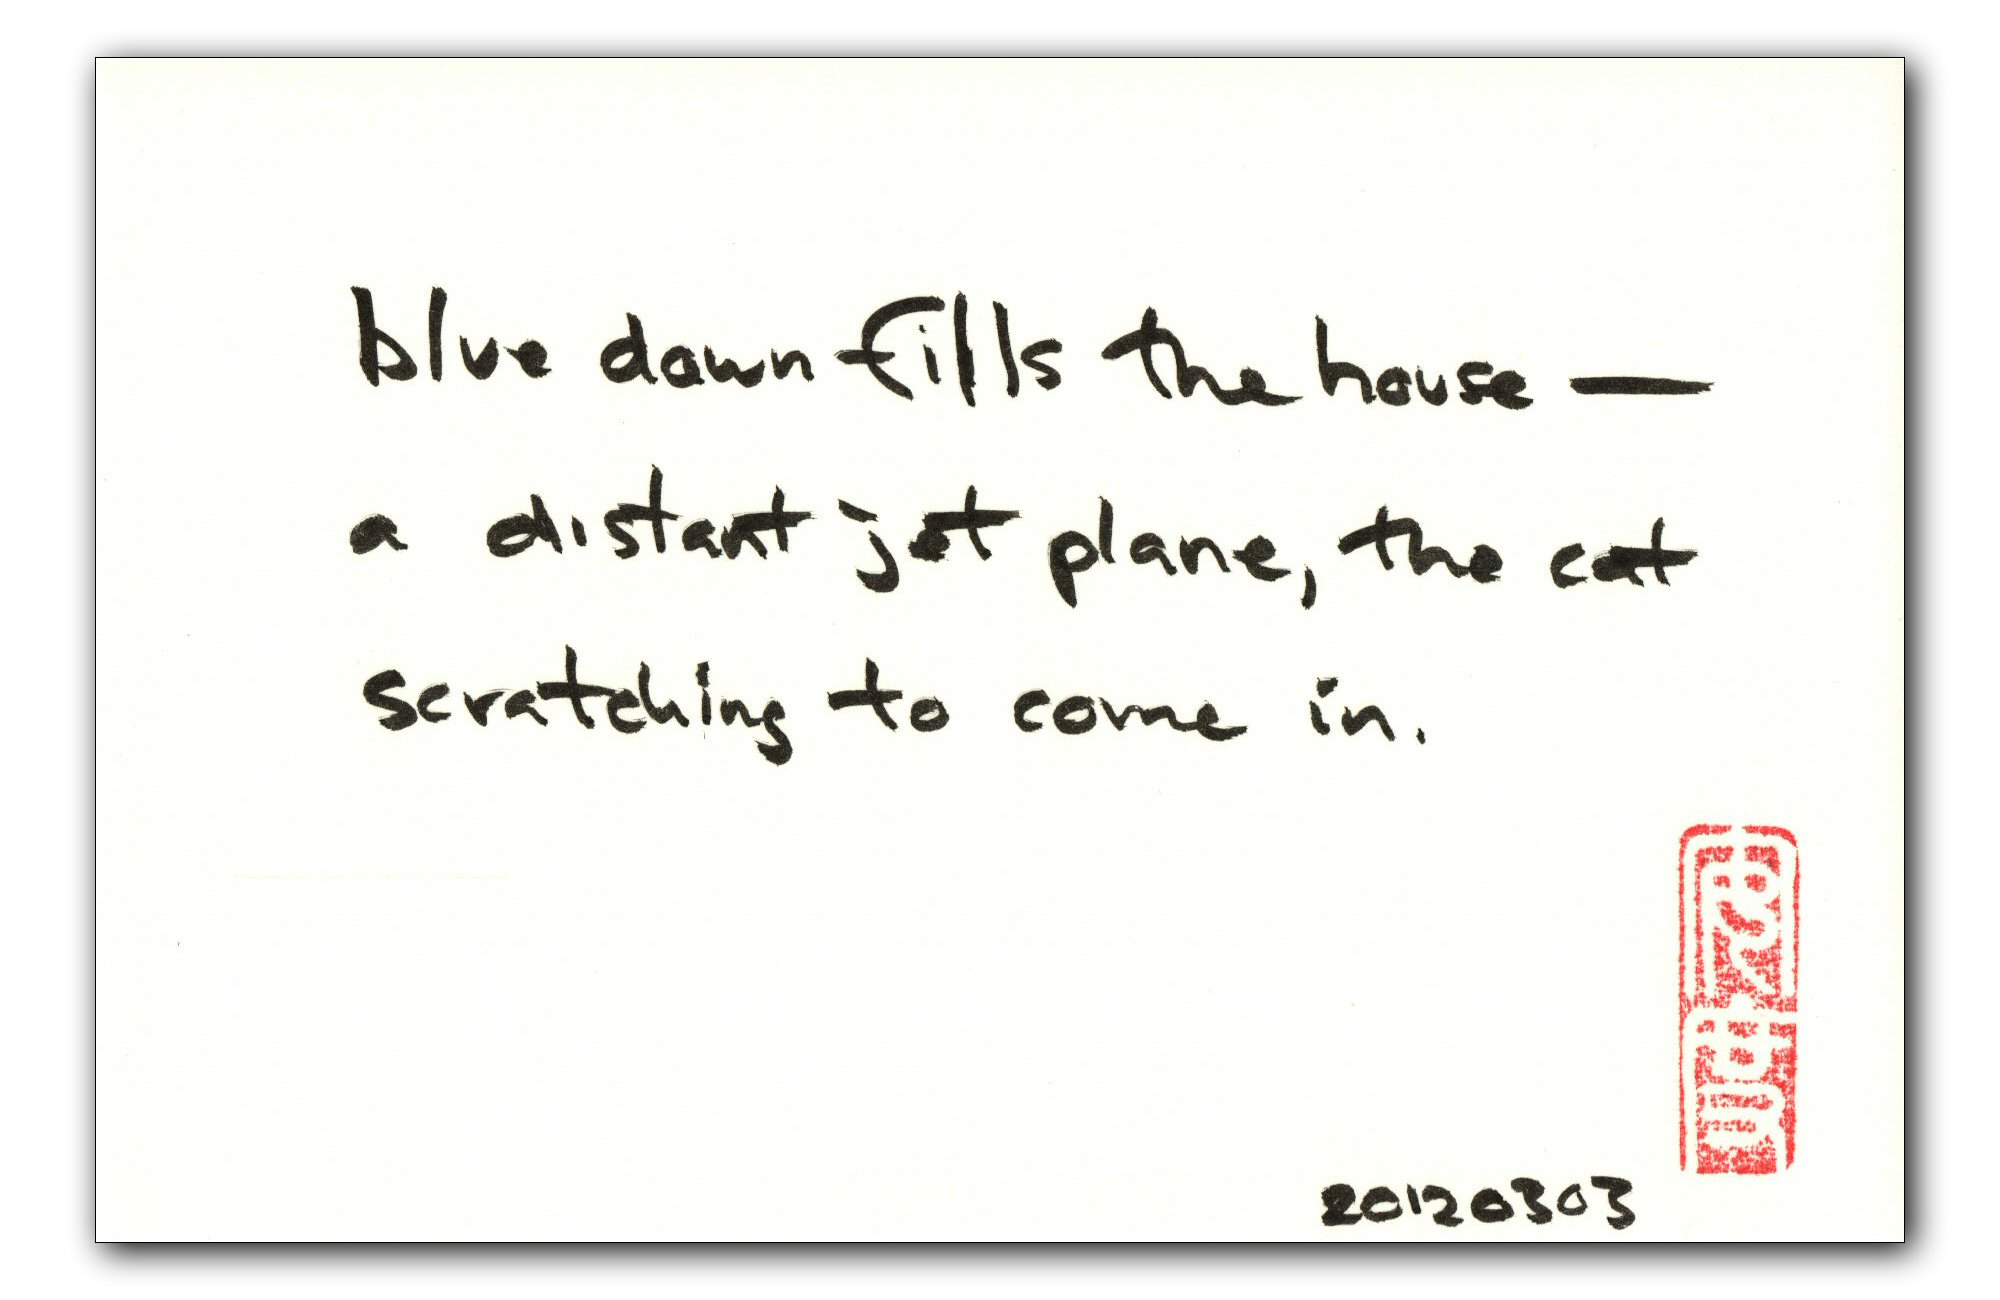 blue dawn fills the house —
a distant jet plane, the cat
scratching to come in.
20120303